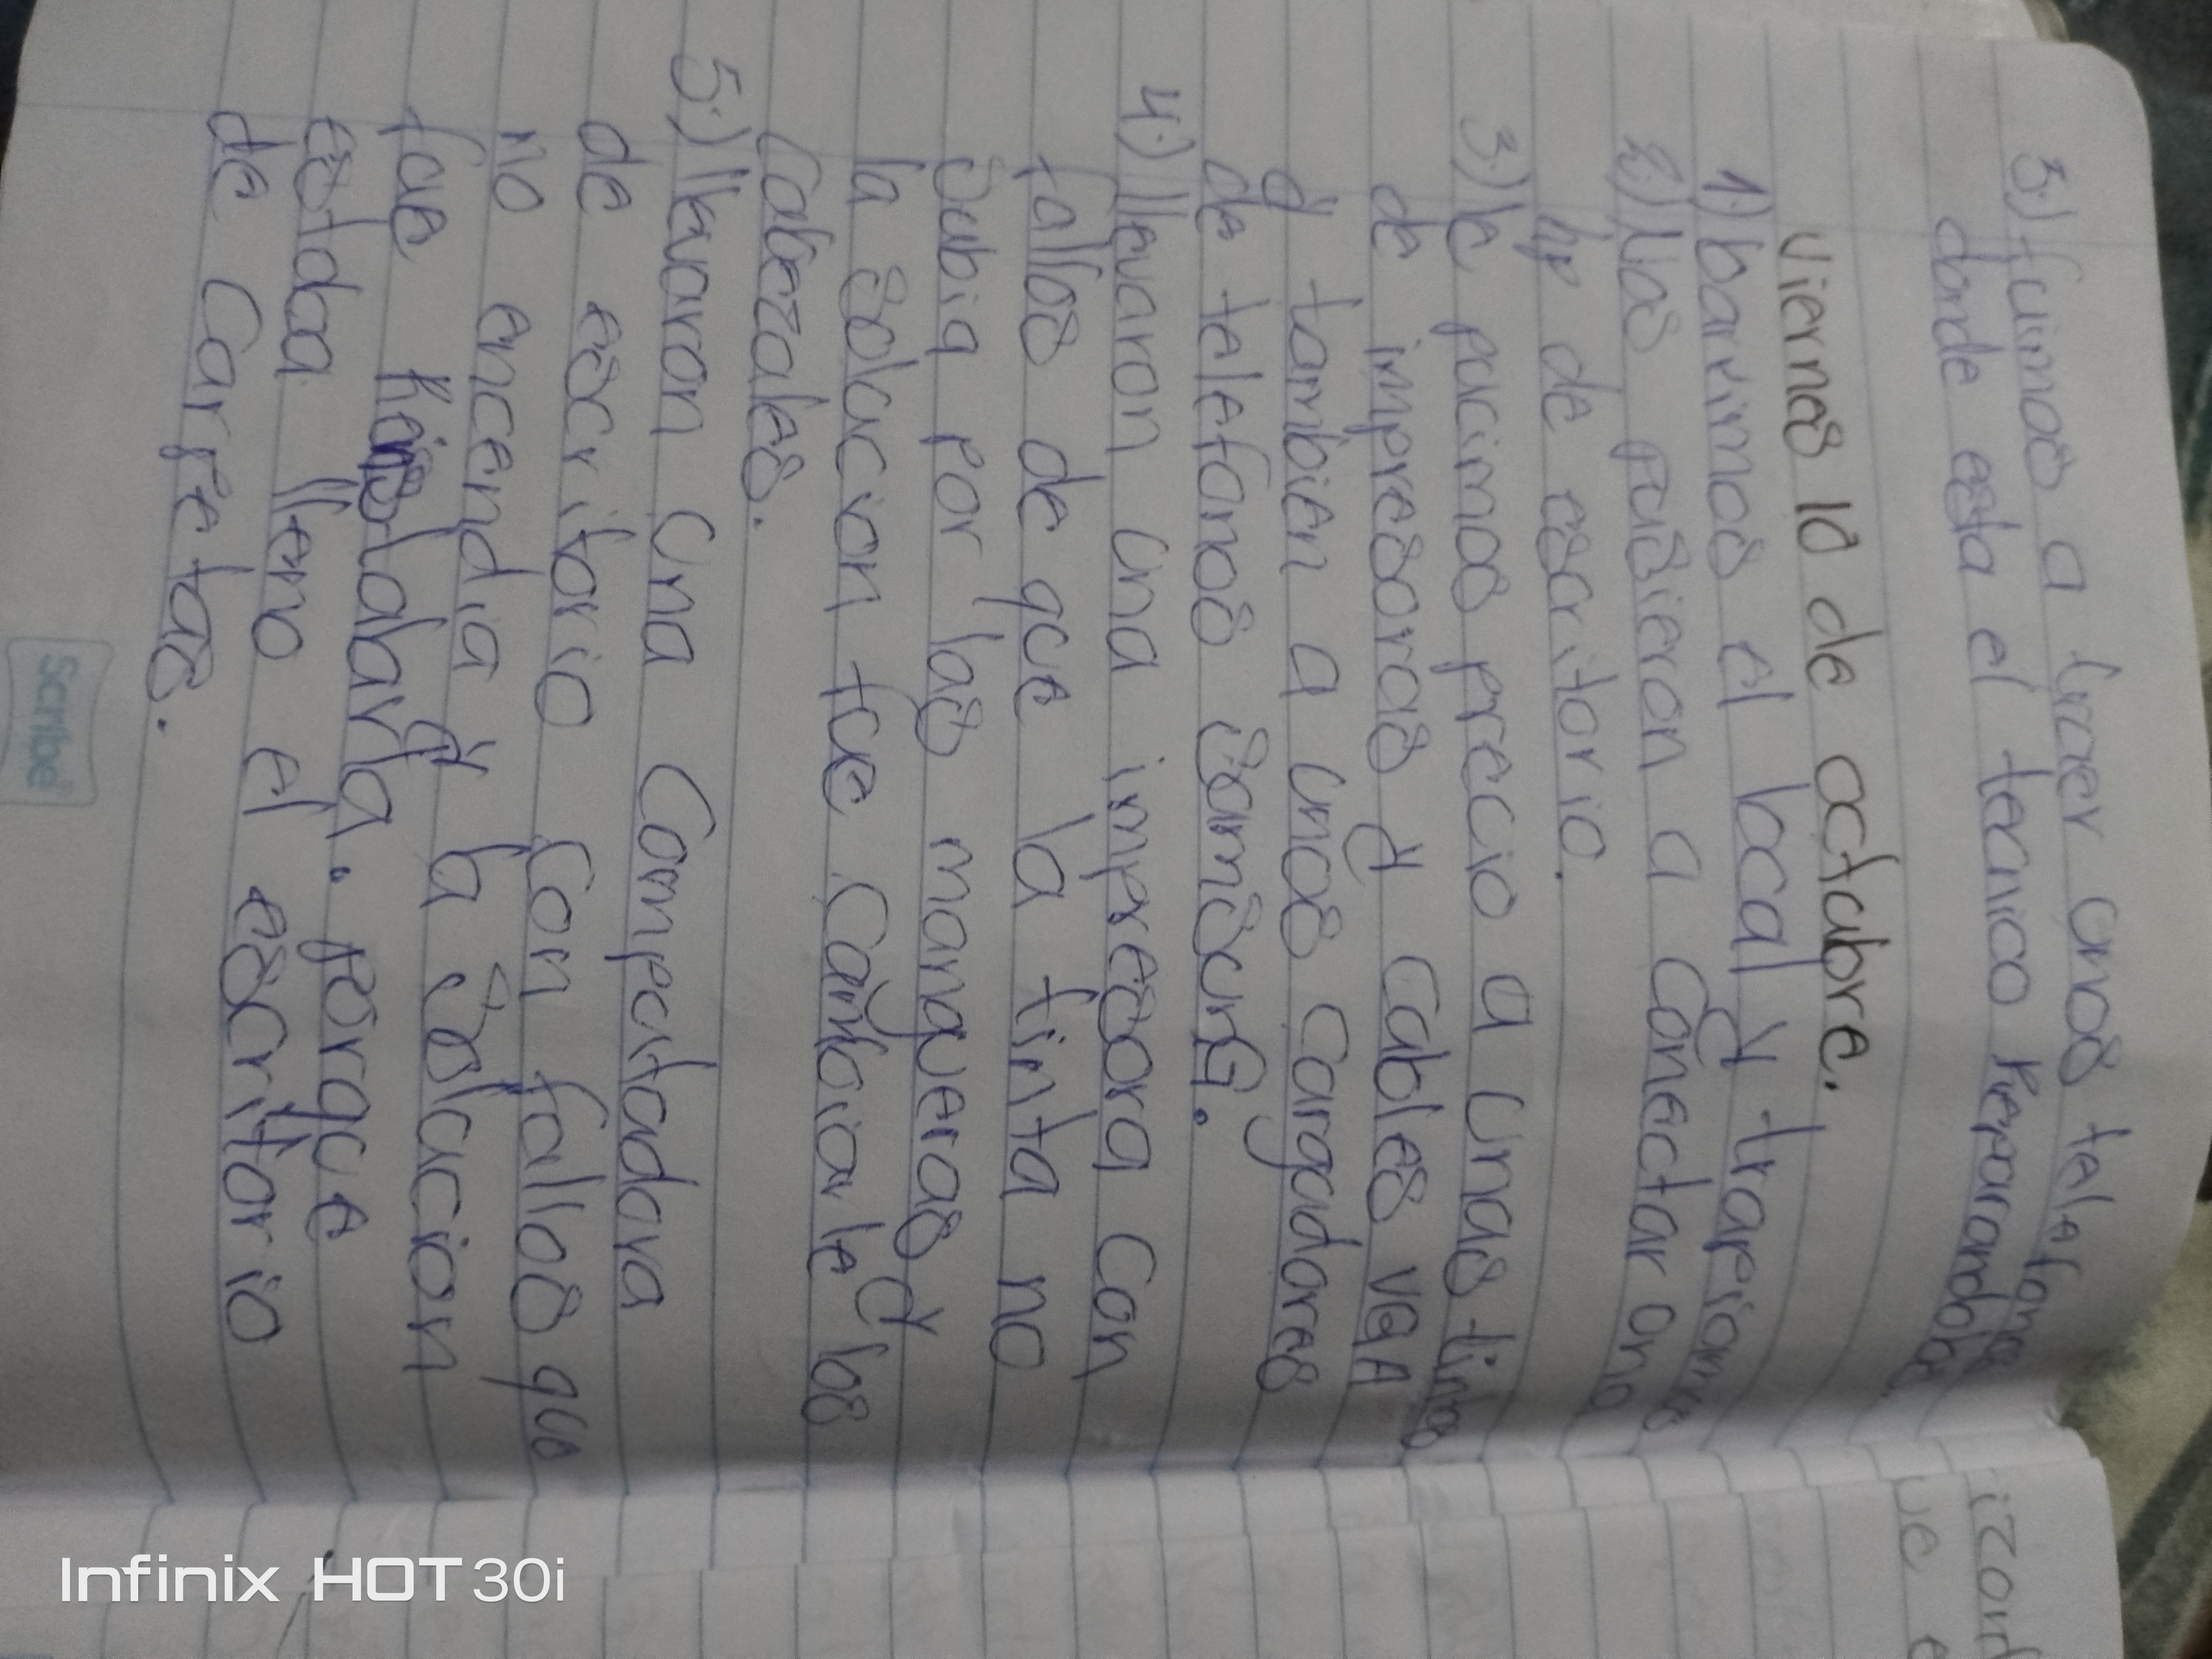 3.) fuimos a traer unos telefonos
donde esta el tecnico Reparandolos.
Viernes 10 de octubre.
1.) barrimos el local y trapiamos
2.) Nos pusieron a conectar una
hp de escritorio.
3.) le pucimos precio a unas tintas
de impresoras y cables VGA
y tambien a unos cargadores
de telefonos Samsung.
4.) llevaron una impresora con
fallos de que la tinta no
subia por las mangueras y
la solucion fue cambiarle los
cabezales.
5.) llevaron una computadora
de escritorio con fallos que
no encendia y la solucion
fue
estaba lleno el escritorio
de carpetas.
Scribe
Infinix HOT 30i